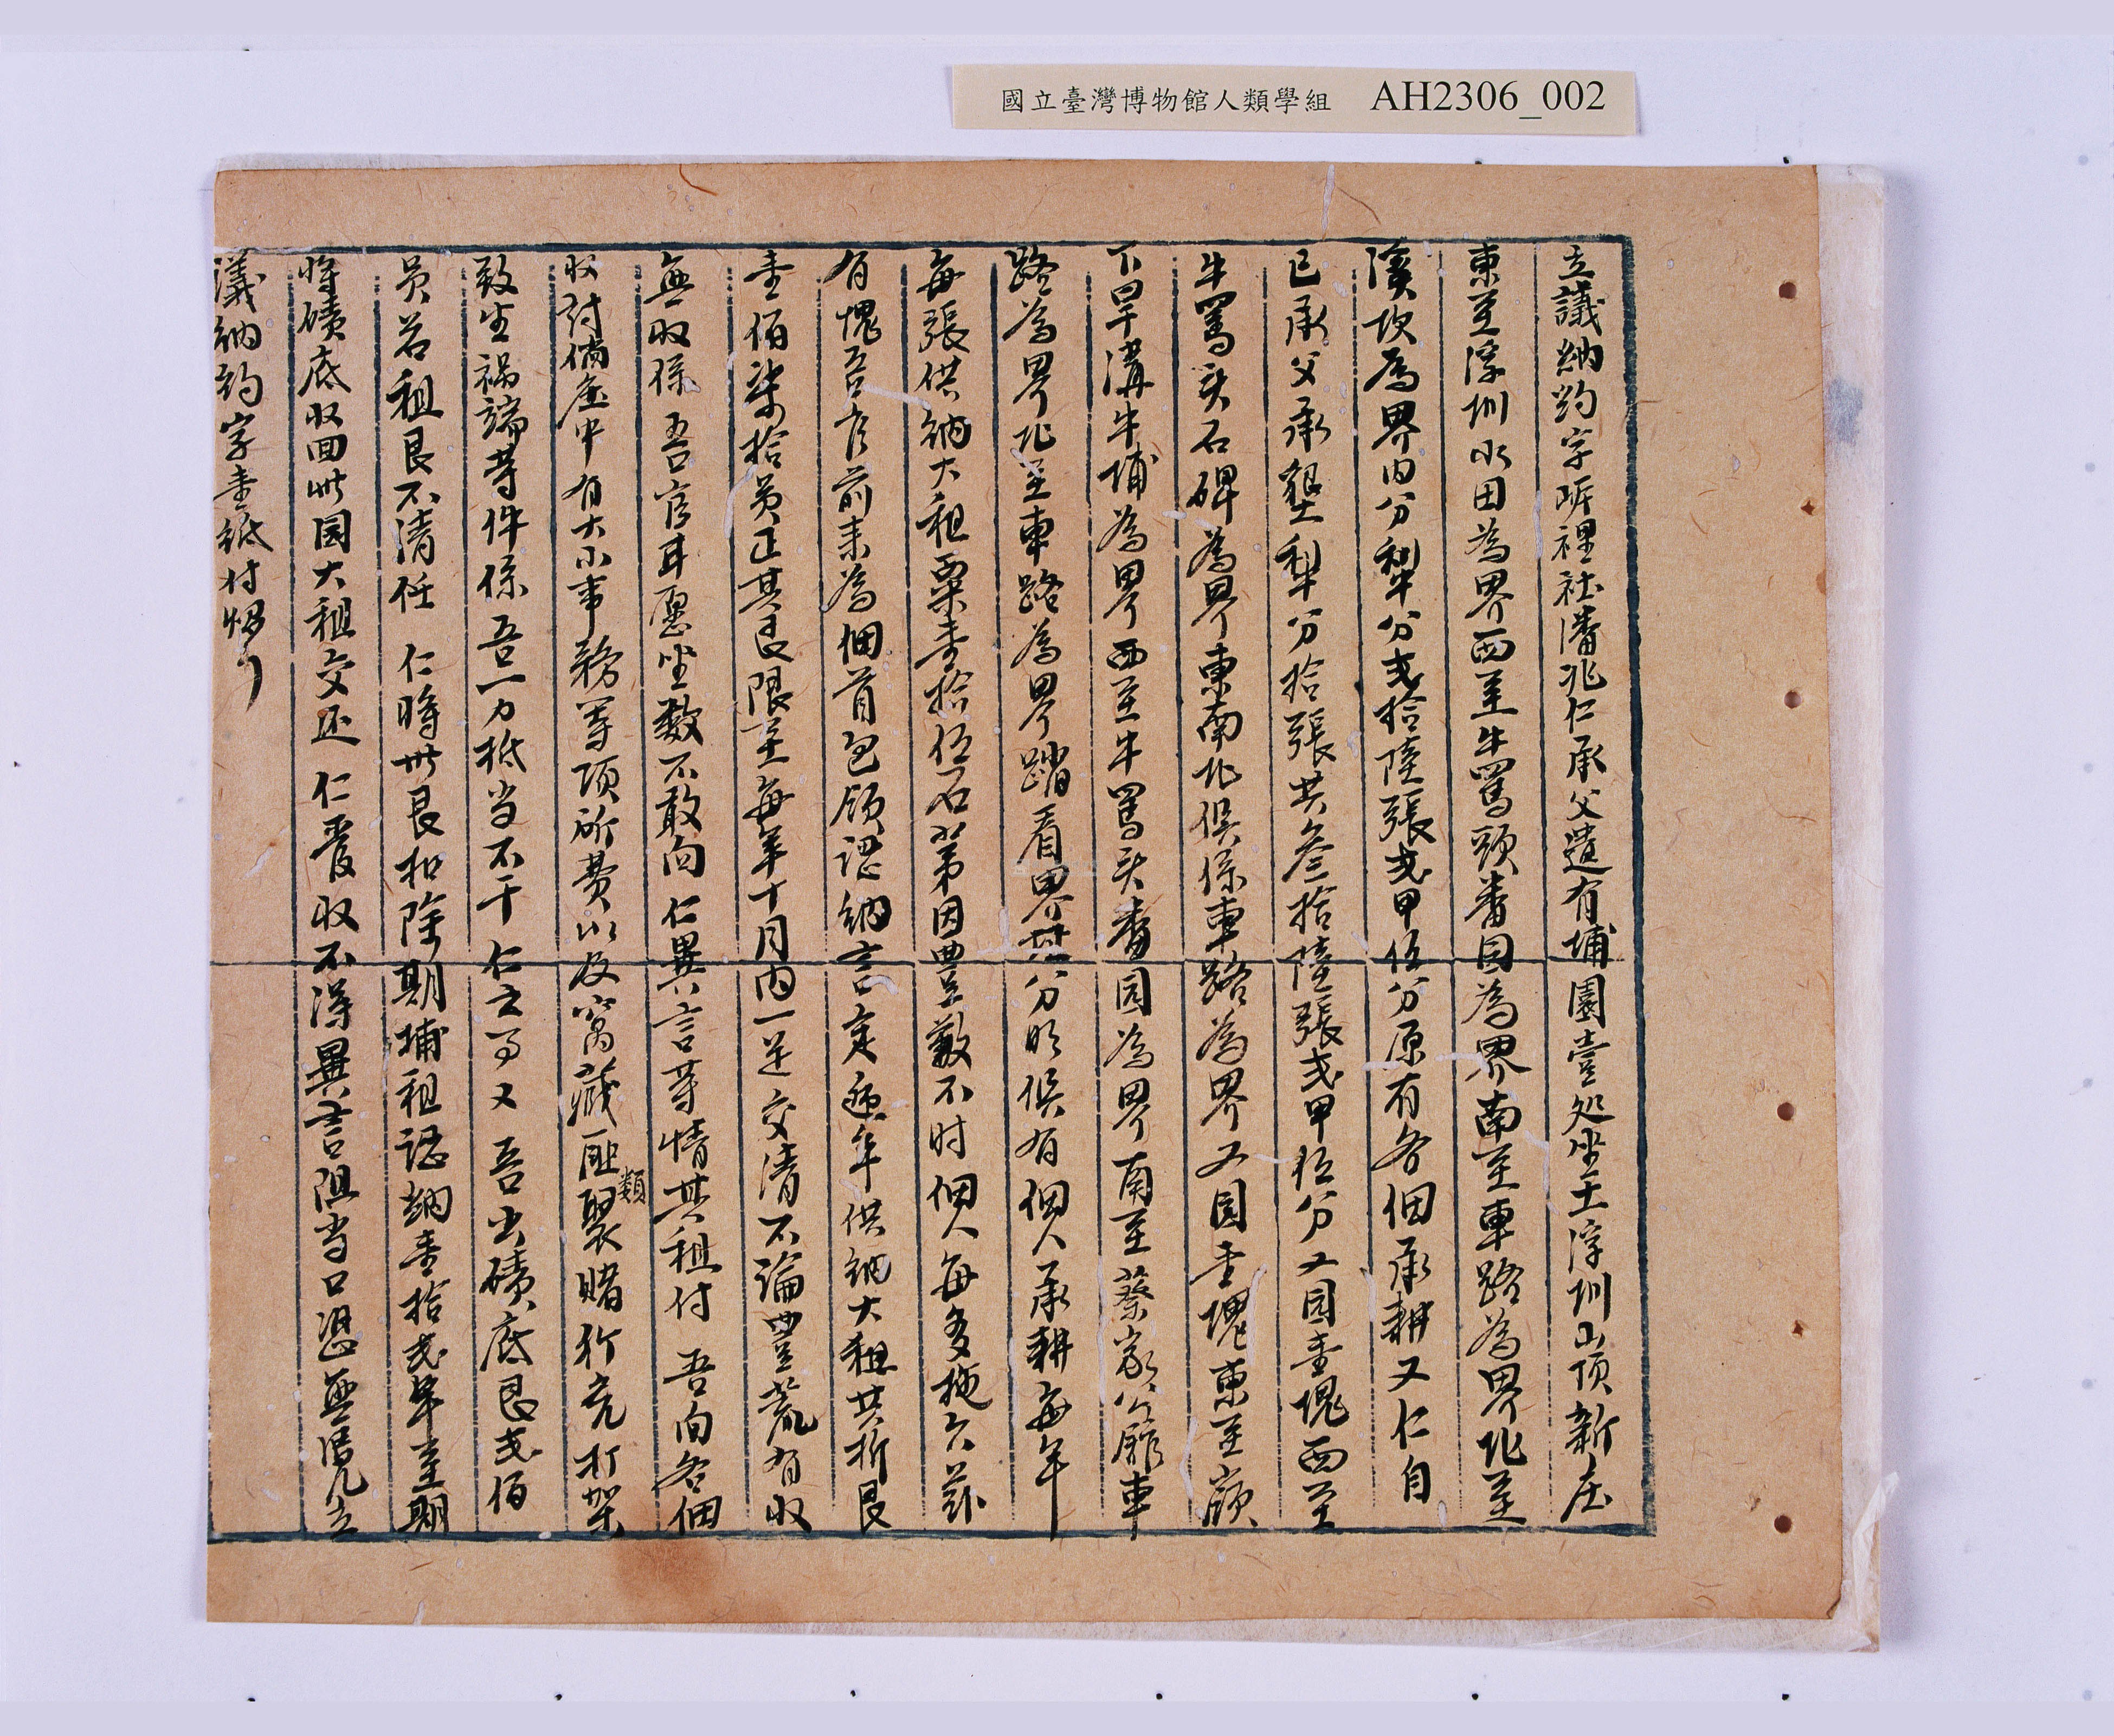 國立臺灣博物館人類學組 AH2306_002
立議納約字岸裡社潘兆仁承父遺有埔園壹処坐土浮圳山頂新庄
東至浮圳水田為界西至牛罵頭番园為界南至車路為界北至
溪坎為界内分犁分弍拾陸張弍甲伍分原有各佃承耕又仁自
己承父承墾犁分拾張共叁拾陸張弍甲伍分又园壹塊西至
牛罵头石碑為界東南北俱係車路為界又园壹塊東至嶺
下旱溝牛埔為界西至牛罵头番园為界南至蔡家公館車
路為界北至車路為界踏看界址分明俱有佃人承耕每年
每張供納大租粟壹拾伍石第因豊歉不时佃人每多拖欠茲
有愧吾官前来為佃首包領認納言定递年供納大租共折艮
壹佰柒拾員正其艮限至每年十月内一足交清不論豊荒有收
無收係 吾官甘愿坐数不敢向 仁異言等情其租付 吾向各佃
收討倘庄中有大小事務等項所費以及窩藏匪類聚賭行兇打架
致生禍端等件係 吾一力抵当不干 仁之事又 吾出磧底艮弍佰
員若租艮不清任 仁將此艮扣除期埔租認納壹拾弍年至期
将磧底收回此园大租交还 仁掌收不得異言阻当口恐無凴立
議納約字壹紙付炤